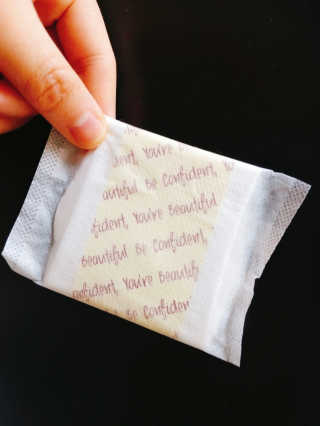 dent, You're
autiful Be Confident, Yo
fident, You're Beautiful
Beautiful Be Confident,
onfident, You're Beautif
Be Confiden